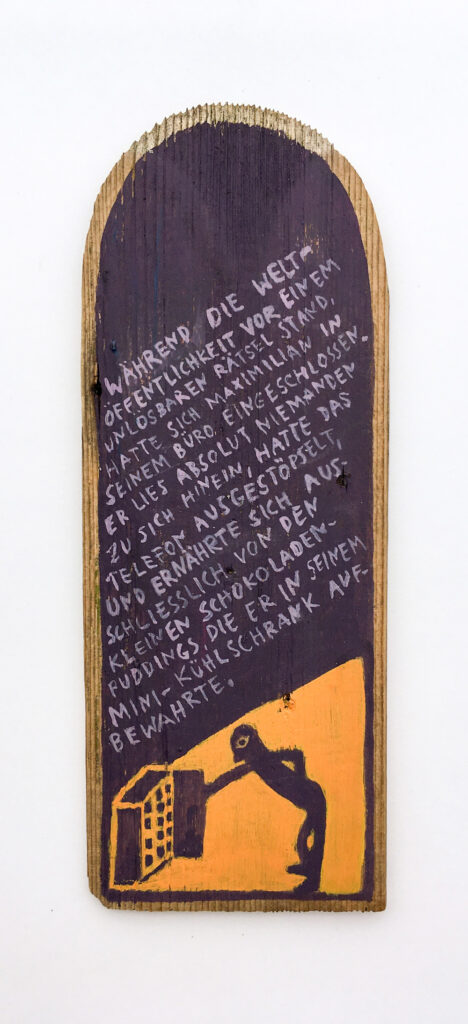 WÄHREND DIE WELT-
ÖFFENTLICHKEIT VOR EINEM
UNLÖSBAREN RÄTSEL STAND,
HATTE SICH MAXIMILIAN IN
SEINEM BÜRO EINGESCHLOSSEN.
ER LIES ABSOLUT NIEMANDEN
ZU SICH HINEIN, HATTE DAS
TELEFON AUSGESTÖPSELT,
UND ERNÄHRTE SICH AUS-
SCHLIESSLICH VON DEN
KLEINEN SCHOKOLADEN-
PUDDINGS, DIE ER IN SEINEM
MINI-KÜHLSCHRANK AUF-
BEWAHRTE.